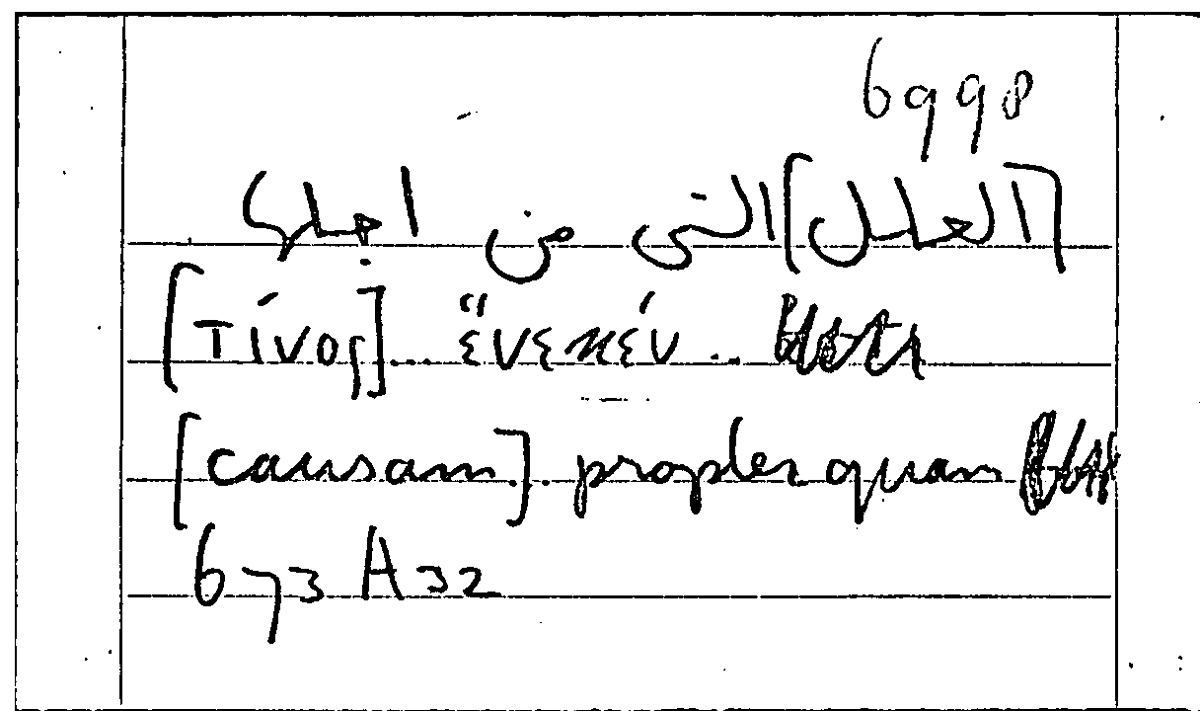 6998
[العلل] التى من اجلها
[τίνος]... ἕνεκέν ..
[causam].. propter quam
673 A 32